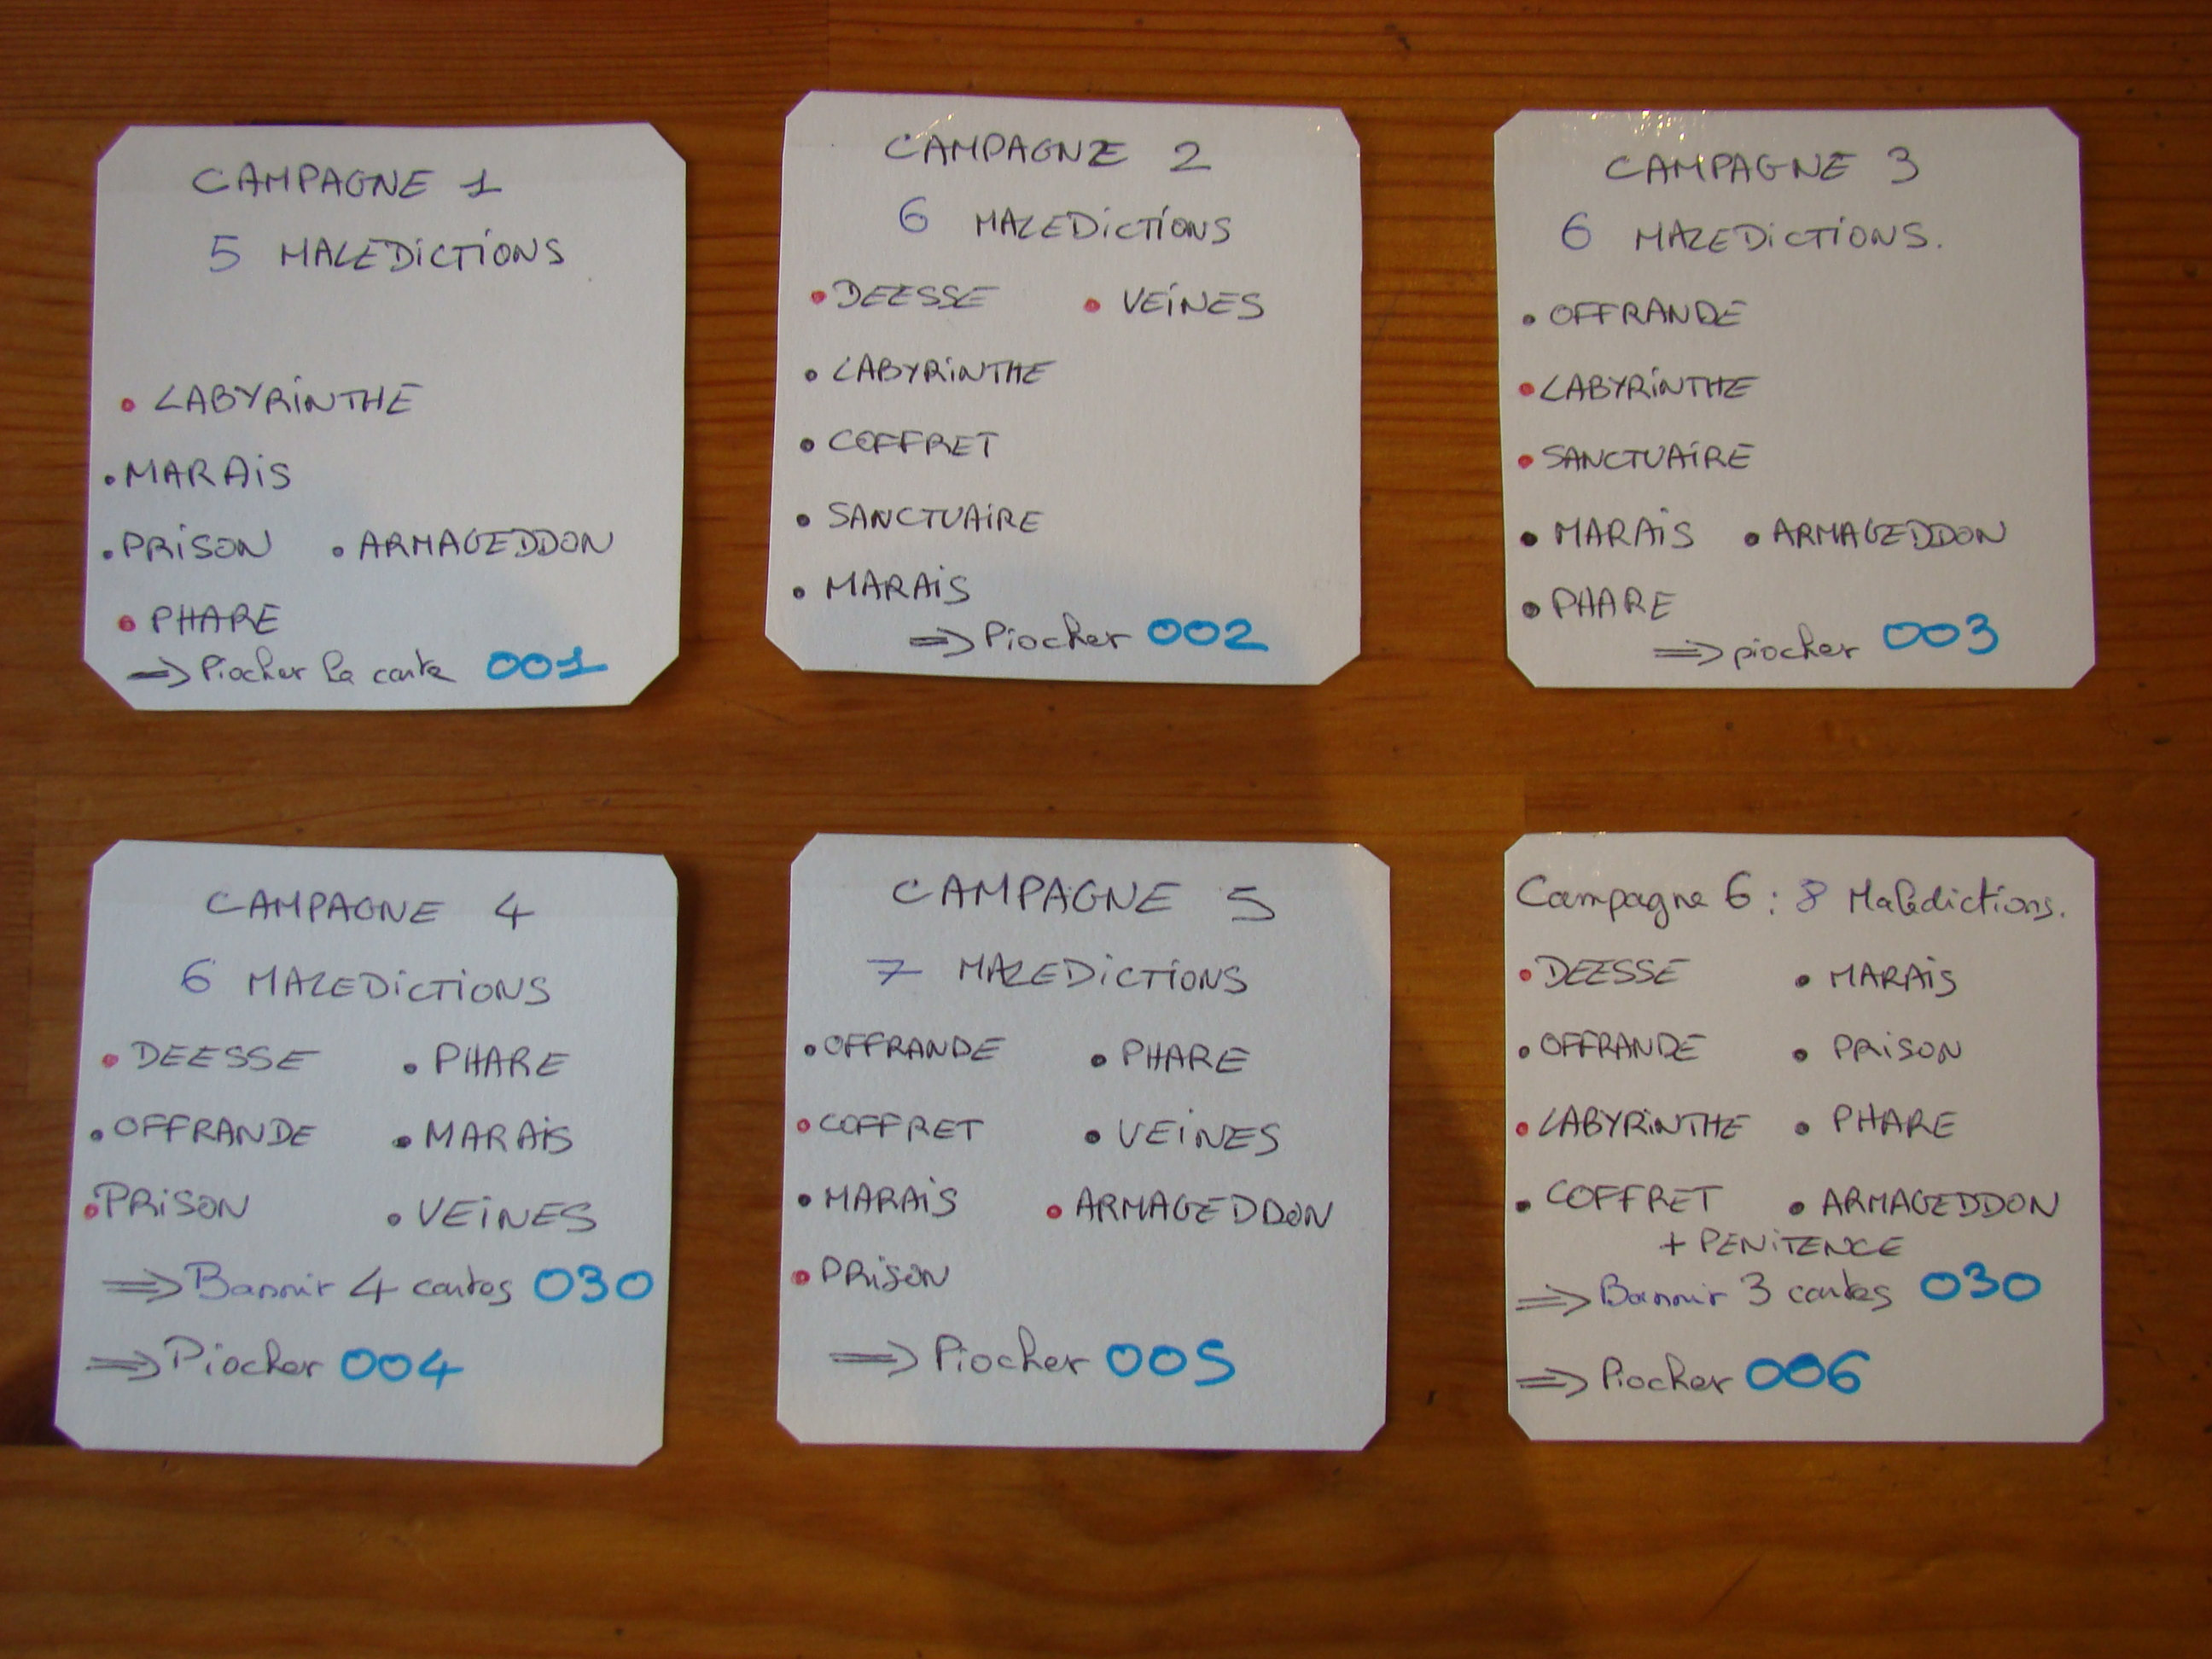 CAMPAGNE 1
5 MALEDICTIONS
• LABYRINTHE
• MARAIS
• PRISON • ARMAGEDDON
• PHARE
⇒ Piocher la carte 001
CAMPAGNE 2
6 MALEDICTIONS
• DEESSE • VEINES
• LABYRINTHE
• COFFRET
• SANCTUAIRE
• MARAIS
⇒ Piocher 002
CAMPAGNE 3
6 MALEDICTIONS.
• OFFRANDE
• LABYRINTHE
• SANCTUAIRE
• MARAIS • ARMAGEDDON
• PHARE
⇒ piocher 003
CAMPAGNE 4
6 MALEDICTIONS
• DEESSE • PHARE
• OFFRANDE • MARAIS
• PRISON • VEINES
⇒ Bannir 4 cartes 030
⇒ Piocher 004
CAMPAGNE 5
7 MALEDICTIONS
• OFFRANDE • PHARE
• COFFRET • VEINES
• MARAIS • ARMAGEDDON
• PRISON
⇒ Piocher 005
Campagne 6 : 8 Malédictions.
• DEESSE • MARAIS
• OFFRANDE • PRISON
• LABYRINTHE • PHARE
• COFFRET • ARMAGEDDON
+ PENITENCE
⇒ Bannir 3 cartes 030
⇒ Piocher 006